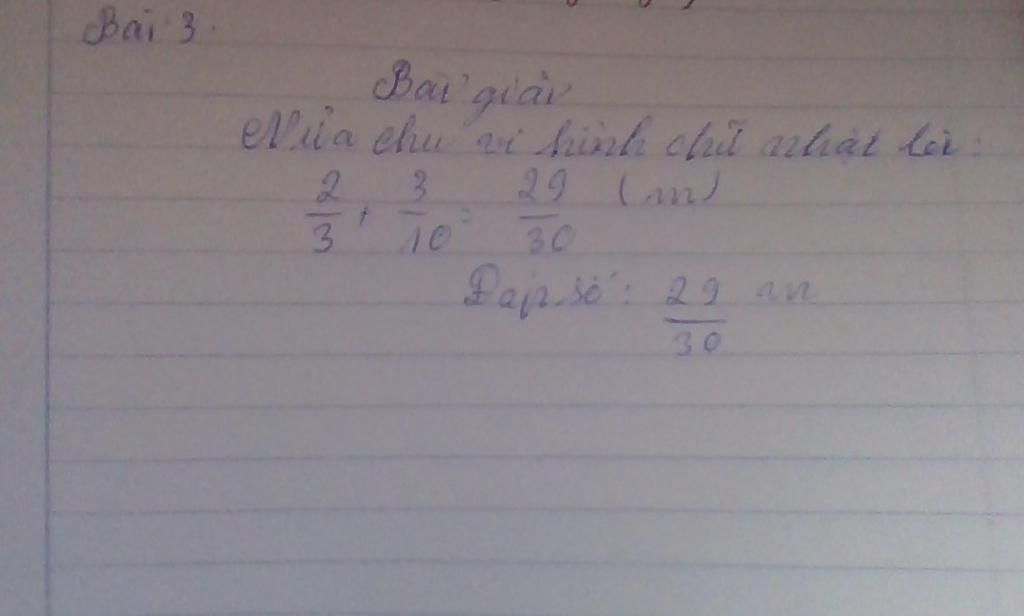 Bài 3.
Bài giải
Nửa chu vi hình chữ nhật là:
2/3 + 3/10 = 29/30 (m)
Đáp số: 29/30 m